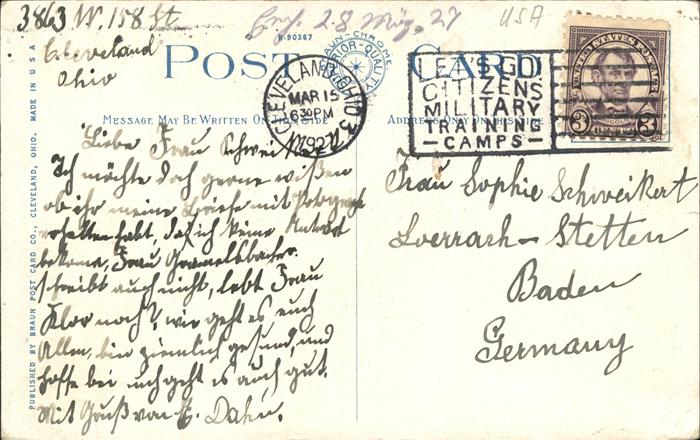 3863 W. 158 St
Cleveland
Ohio
28 März. 27
USA
POST CARD
R-90367
BRAUN-CHROME
SUPERIOR-QUALITY
CLEVELAND, OHIO 3
MAR 15
630PM
1927
LET'S GO!
CITIZENS
MILITARY
TRAINING
CAMPS
UNITED STATES POSTAGE
3 LINCOLN 3
MESSAGE MAY BE WRITTEN ON THIS SIDE
ADDRESS ONLY ON THIS SIDE
PUBLISHED BY BRAUN POST CARD CO., CLEVELAND, OHIO. MADE IN U S A
Liebe Frau Schweikert
Ich möchte doch gerne wißen
ob ihr meine Briefe mit Potograph
erhalten habt, daß ich keine Antwort
bekome, Frau
schreibt auch nicht, lebt Frau
Klor noch?, wie geht es euch
Allen, bin ziemlich gesund, und
hoffe bei euch geht es auch gut.
Mit Gruß von E. Dahn.
Frau Sophie Schweikert
Loerrach-Stetten
Baden
Germany